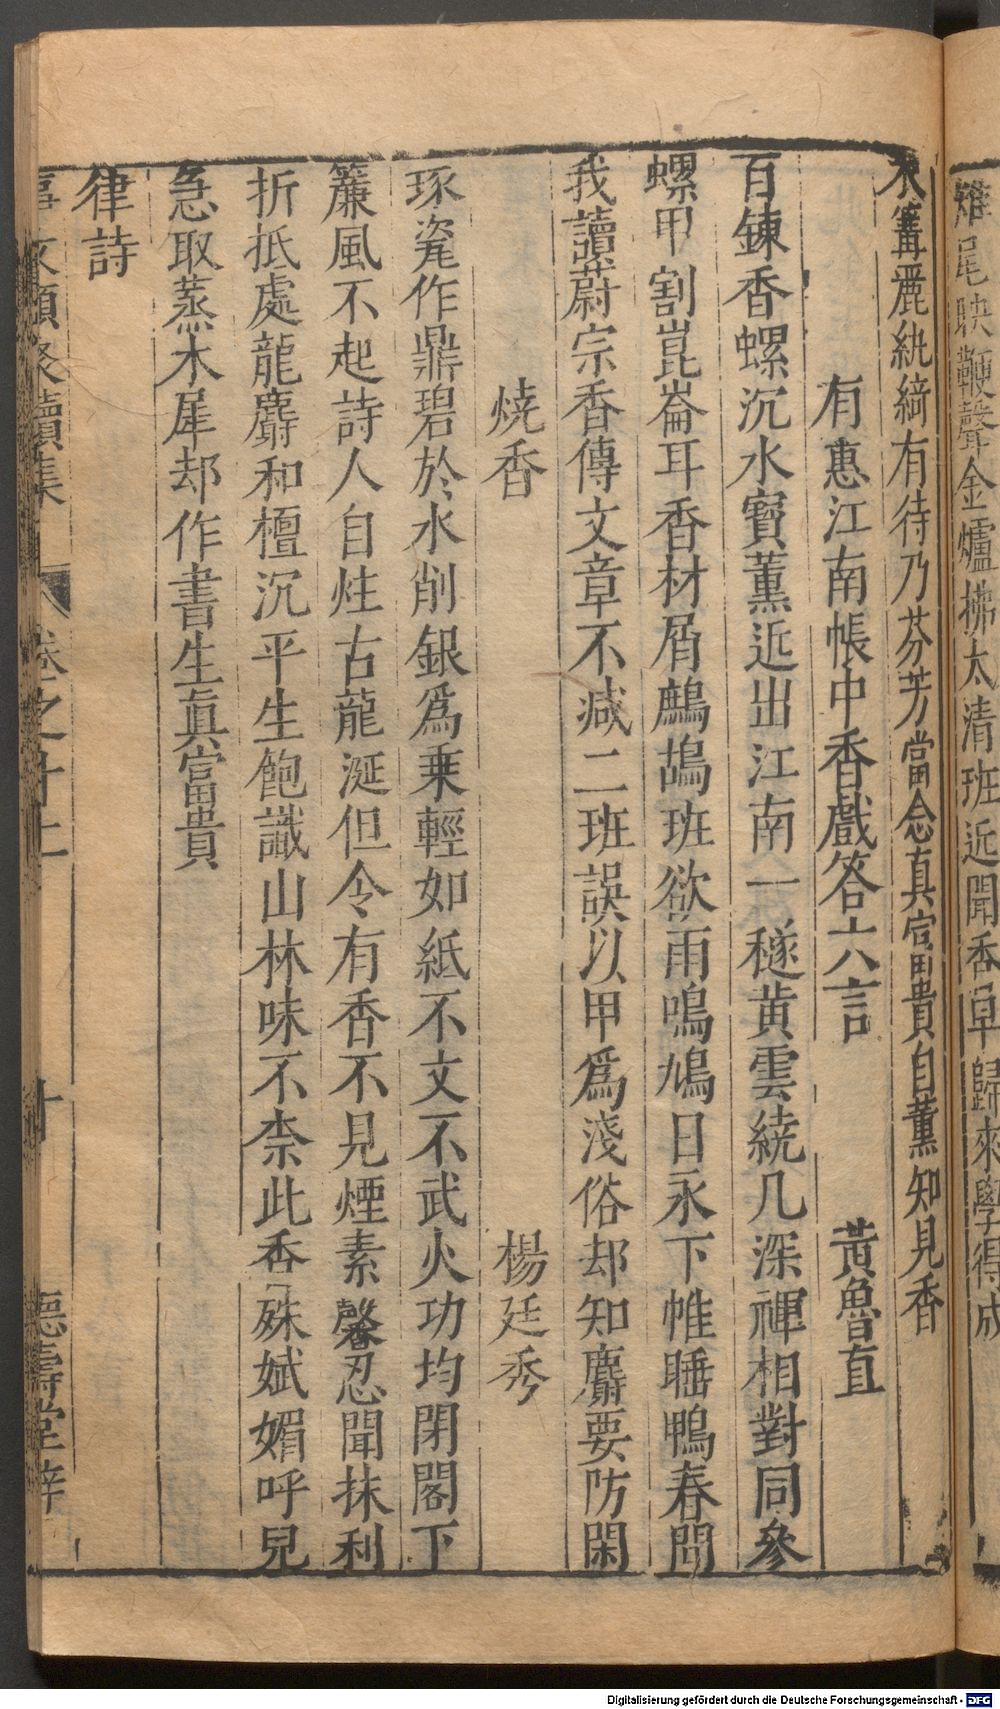 雉尾映鞭聲金爐拂太清班近聞香早歸來學得成
衣篝麗紈綺有待乃芬芳當念真富貴自薰知見香
有惠江南帳中香戲答六言 黃魯直
百鍊香螺沉水寳薰近出江南一穟黃雲繞几深禪相對同參
螺甲割崑崙耳香材屑鷓鴣班欲雨鳴鳩日永下帷睡鴨春閒
我讀蔚宗香傳文章不減二班誤以甲為淺俗却知麝要防閑
燒香 楊廷秀
琢瓷作鼎碧於水削銀爲乗輕如紙不文不武火功均閉閣下
簾風不起詩人自炷古龍涎但令有香不見煙素馨忽聞抹利
折抵處龍麝和檀沉平生飽識山林味不柰此香殊娬媚呼兒
急取蒸木犀却作書生眞富貴
律詩
事文類聚續集 卷之十二 十 德壽堂梓
Digitalisierung gefördert durch die Deutsche Forschungsgemeinschaft - DFG